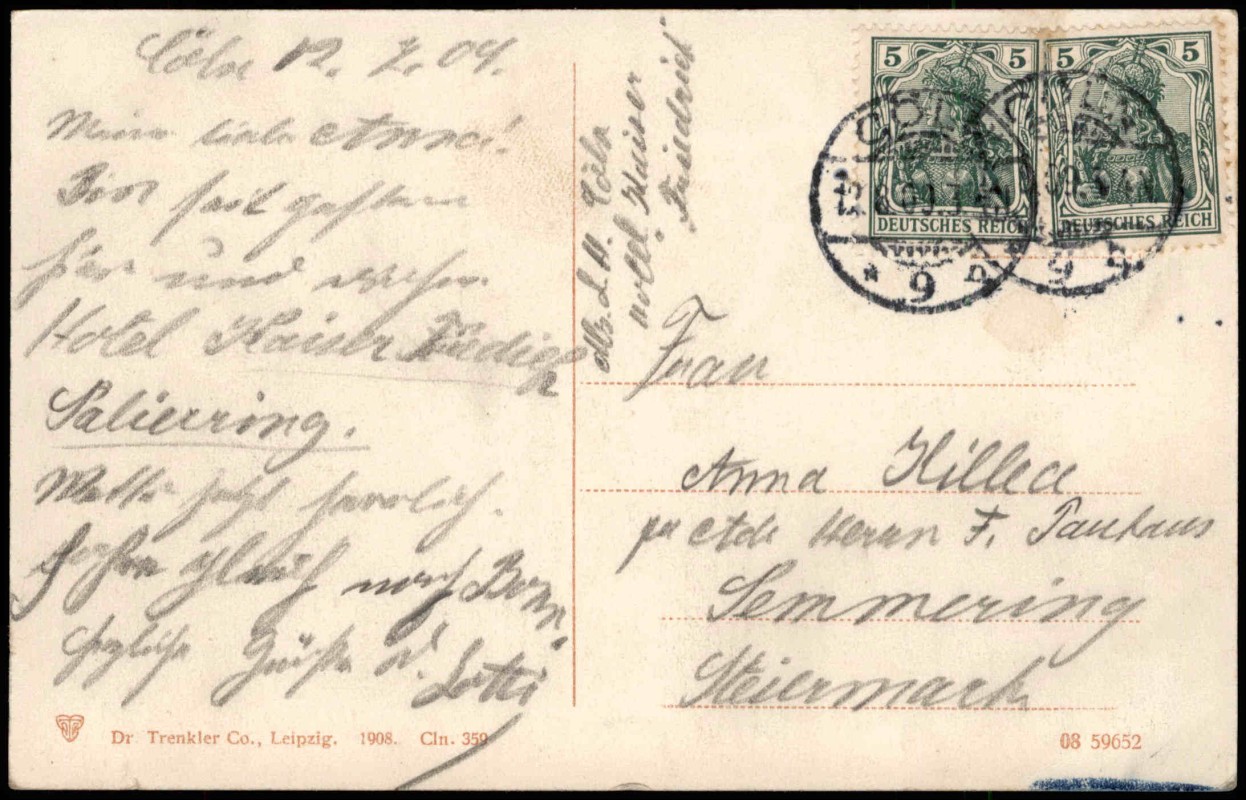 Cöln 12. 09.
Meine liebe Anna!
Bin seit gestern
hier und
Hotel Kaiser Friedich
Salierring.
Wetter jetzt herrlich.
gleich nach Bonn.
herzliche Grüße d. Lotti
Abs. L. H. Cöln
Hotel Kaiser
Friedrich
5 5
DEUTSCHES REICH
5 5
DEUTSCHES REICH
CÖLN
* 9 n
Frau
Anna Hillece
Herrn F. Panhans
Semmering
Steiermark
Dr Trenkler Co., Leipzig. 1908. Cln. 359
08 59652